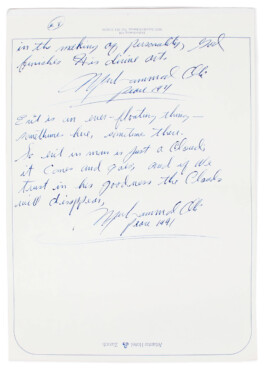 in the making of personality, God
finishes His divine act.
Muhammad Ali
Evil is an ever-floating thing –
sometimes here, sometime there.
So evil in man is just a Cloud,
it comes and goes, and if we
trust in his goodness the Clouds
will disappear,
Muhammad Ali
Atlantis Hotel Zurich